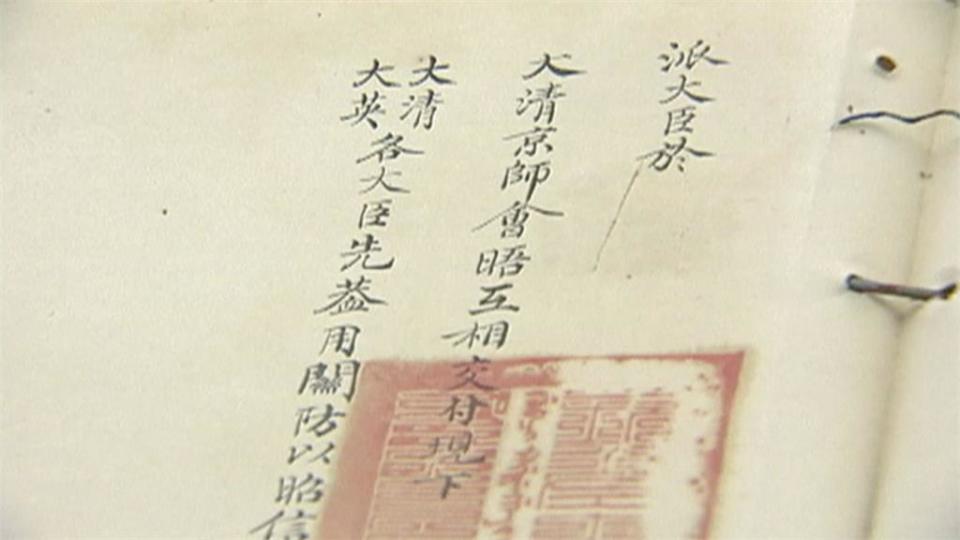 派大臣於
大清京師會晤互相交付現下
大清
大英各大臣先蓋用關防以昭信